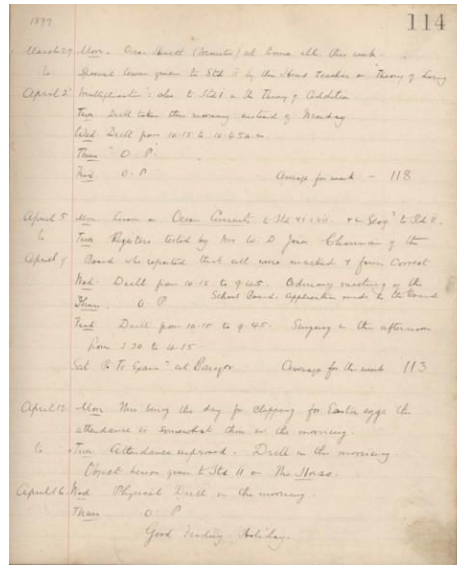 1897 114
March 29 Mon. Owen Hewitt (Monitor) at home ill this week
to Special lesson given to Std II by the Head Teacher on "Theory of Long
April 2 Multiplication"; also to Std I on the Theory of Addition
Tues Drill taken this morning instead of Monday
Wed Drill from 10-15 to 10-45 a.m.
Thurs O. P.
Frid O. P. Average for week - 118
April 5 Mon Lesson on Ocean Currents to Std to Std II.
to Tues Registers tested by Mr W. D. Jones Chairman of the
April 9 Board who reported that all were marked & found correct
Wed. Drill from 10.15 to 9.45. Ordinary meeting of the
Thurs. O. P. School Board. Application made to the Board
Frid Drill from 10-15 to 9-45. Singing in the afternoon
from 3.30 to 4.15
Sat at Bangor Average for the week 113
April 12 Mon This being the day for clapping for Easter eggs the
attendance is somewhat thin in the morning.
to Tues Attendance improved. Drill in the morning.
Object lesson given to Std II on The Horse.
April 16 Wed Physical Drill in the morning.
Thurs O. P.
Good Friday. Holiday.